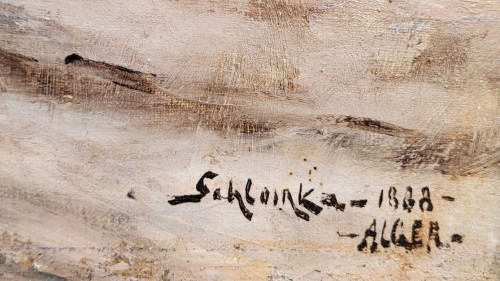 Schlomka - 1888 -
- ALGER -